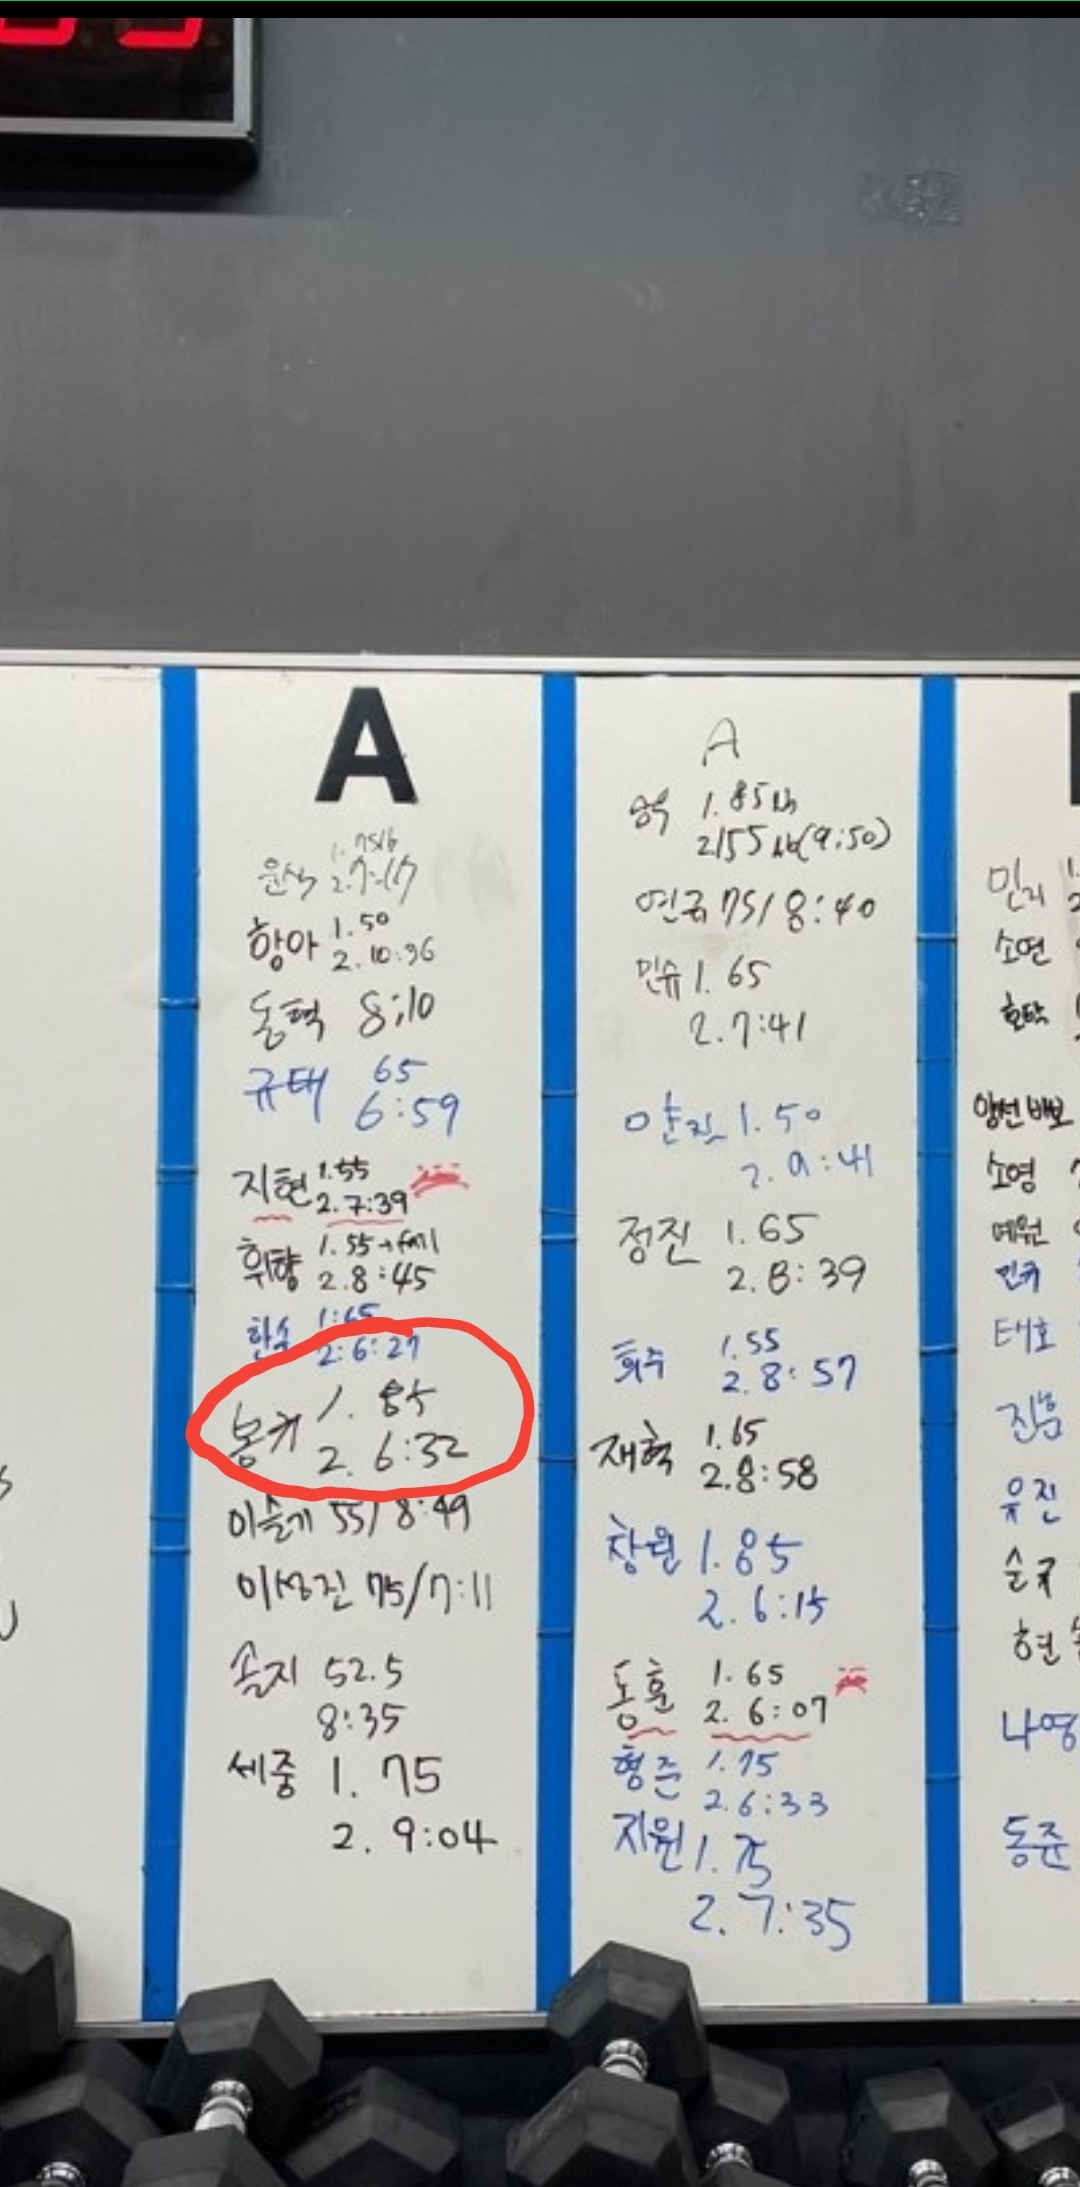 A
윤식 1.75lb
2.7:17
항아 1.50
2.10:36
동혁 8:10
규태 65
6:59
지현 1.55
2.7:39
휘향 1.55→fail
2.8:45
한솔 1:65
2:6:27
봉키 1. 85
2. 6:32
이슬기 55/8:49
이성진 75/7:11
솔지 52.5
8:35
세중 1. 75
2. 9:04
A
1.85lb
2155lb(9:50)
연규 75/8:40
민슈 1.65
2.7:41
1.50
2.9:41
정진 1.65
2.8:39
희주 1.55
2.8:57
재혁 1.65
2.8:58
창원 1.85
2.6:15
동훈 1.65
2.6:07
형준 1.75
2.6:33
지원 1.75
2.7:35
민지 1.
소연
호탁
양선 배보
소영
예원
민규
태호
진흠
유진
슬기
현
나영
동준